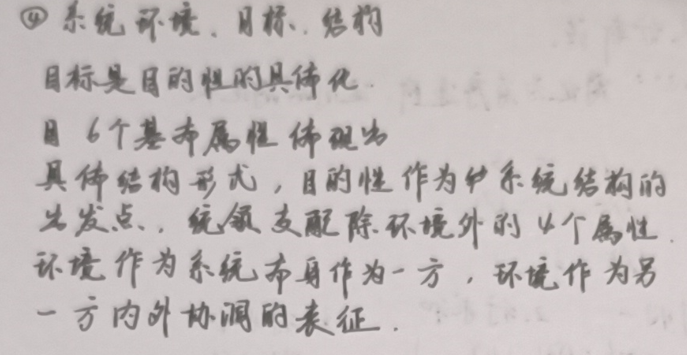 ④ 系统环境、目标、结构
目标是目的性的具体化
目 6个基本属性体现出
具体结构形式，目的性作为系统结构的
出发点、统领支配除环境外的4个属性.
环境作为系统本身作为一方，环境作为另
一方内外协调的表征.